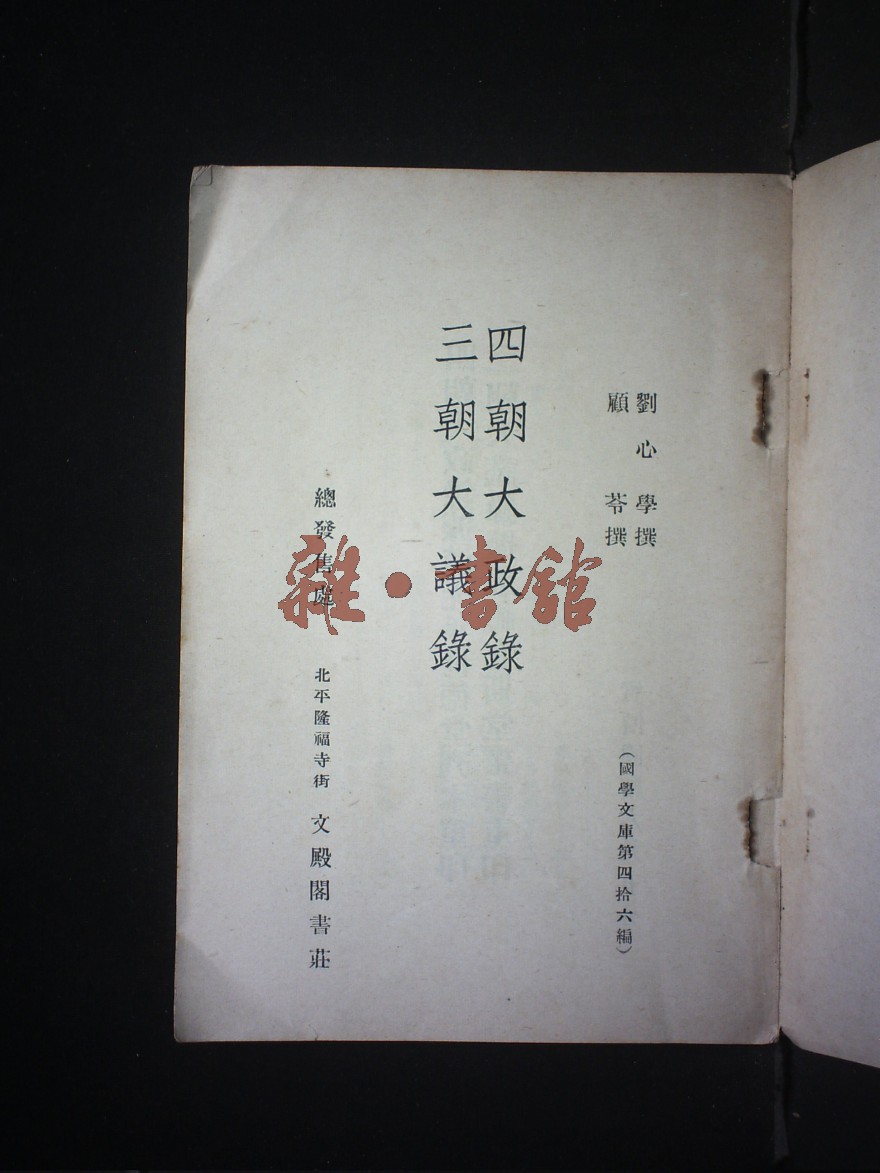 劉心學撰
顧苓撰
(國學文庫第四拾六編)
四朝大政錄
三朝大議錄
總發售處 北平隆福寺街 文殿閣書莊
雜·書館